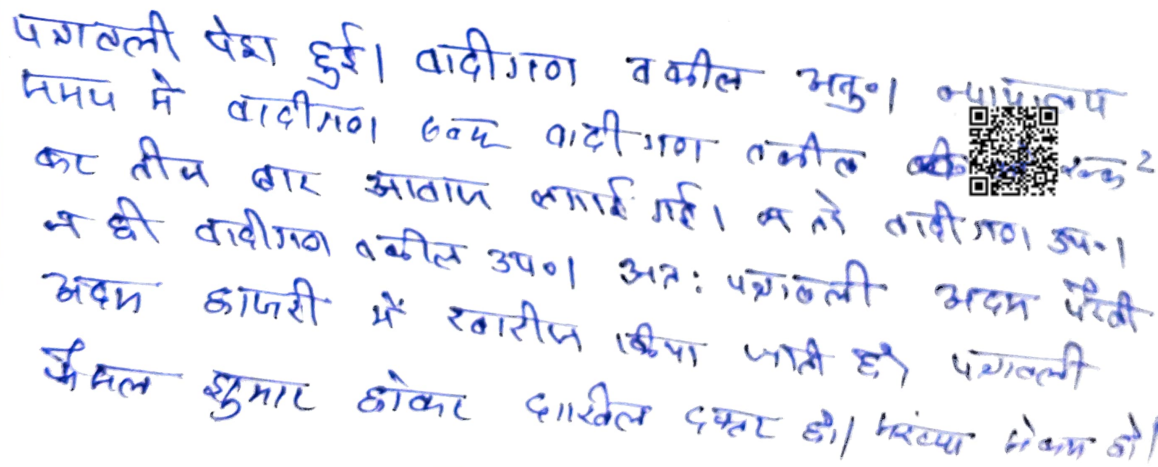 पत्रावली पेश हुई। वादीगण वकील अनु०। न्यायालय
समय मे वादीगण एवम वादीगण वकील को रूक २
कर तीन बार आवाज लगाई गई। न तो वादीगण उप०।
न ही वादीगण वकील उप०। अत: पत्रावली अदम पैरवी
अदम हाजरी में खारीज किया जाती है। पत्रावली
फैसल शुमार होकर दाखिल दफ्तर हो। नम्बर से कम हो।